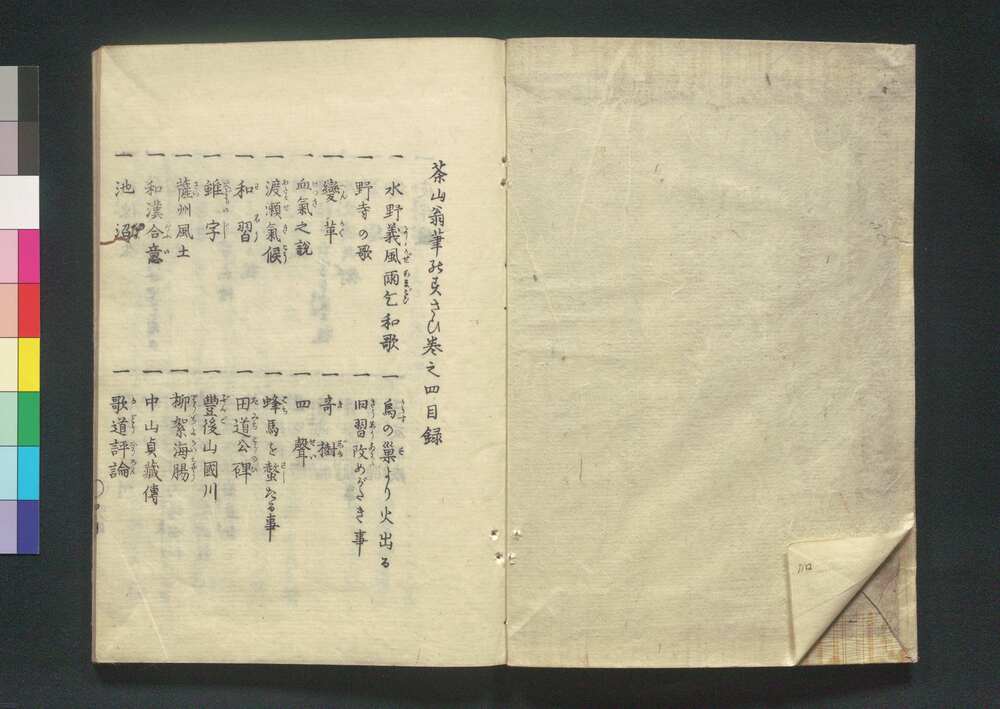 茶山翁筆のすさひ巻之四目録
一 水野義風雨乞和歌
一 烏の巣より火出る
一 野寺の歌
一 旧習改めがたき事
一 變革
一 奇樹
一 血氣之説
一 四聲
一 渡瀬氣候
一 蜂馬を螫たる事
一 和習
一 田道公碑
一 雖字
一 豐後山國川
一 薩州風土
一 柳絮海膓
一 和漢合意
一 中山貞蔵傳
一 池沼
一 歌道評論